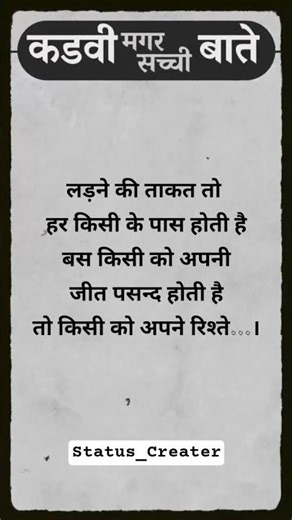 कडवी मगर सच्ची बाते
लड़ने की ताकत तो
हर किसी के पास होती है
बस किसी को अपनी
जीत पसन्द होती है
तो किसी को अपने रिश्ते...।
Status_Creater